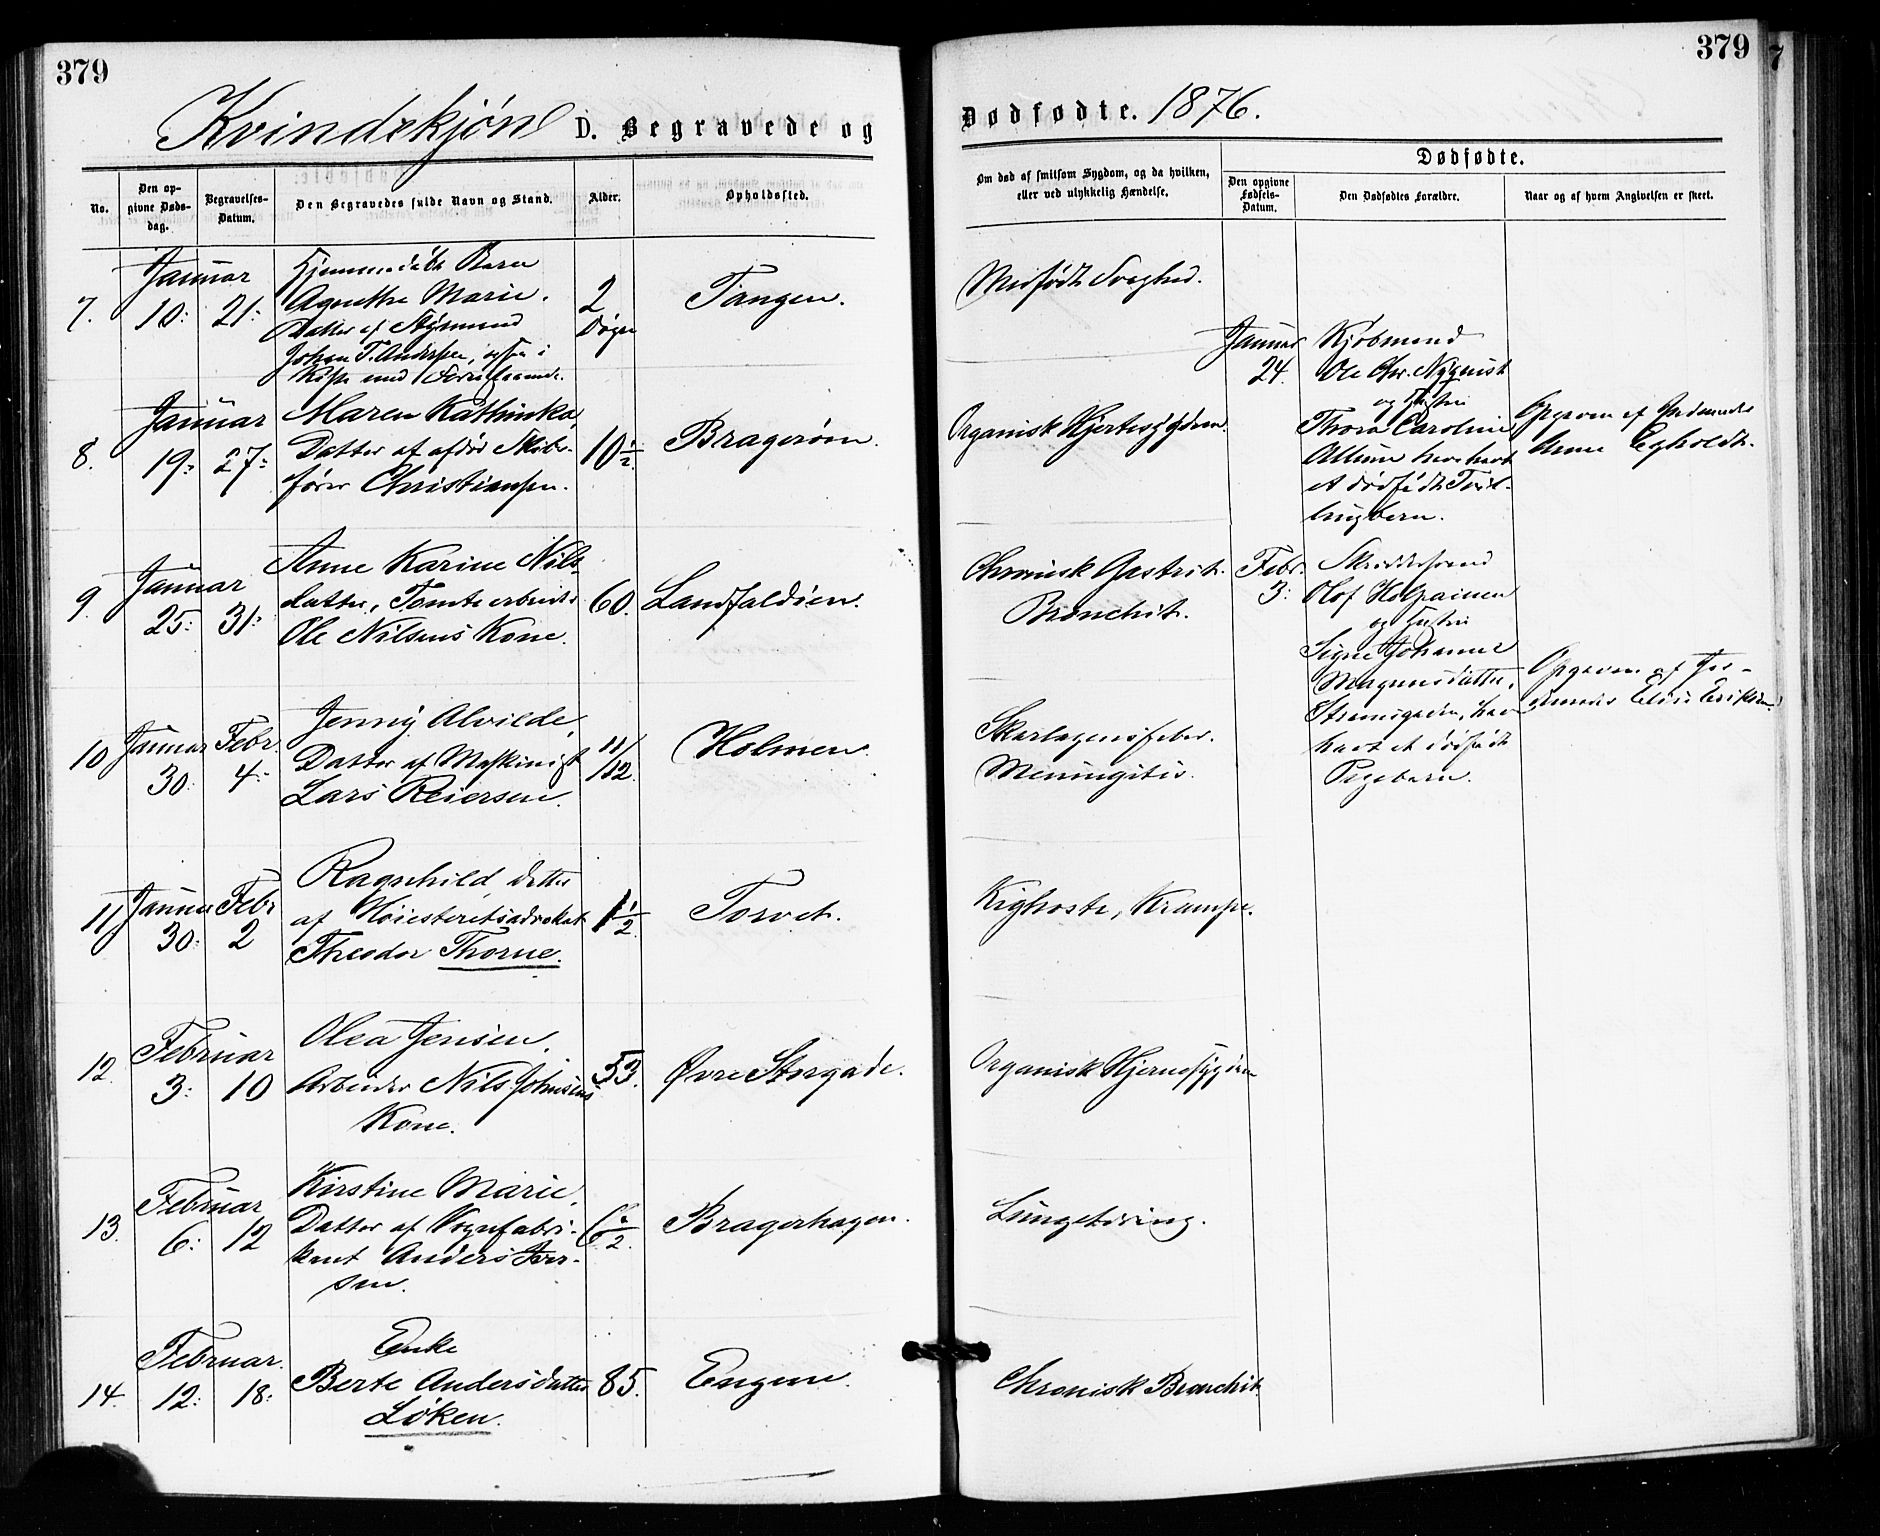 379
Kvindekjøn D. Begravede og
No.
Den op-
givne Døds-
dag.
Begravelses-
Datum.
Den Begravedes fulde Navn og Stand.
Alder.
Opholdssted.
7.
Januar
10: 21:
Hjemmedøbt Barn
Agnethe Marie,
Datter af Styrmand
Johan T. Andersen,
Kiste med
2
Døgn
Tangen.
8.
Januar
19: 27:
Maren Kathinka,
Datter af afdøde Skibs-
fører Christiansen.
10 1/2
Bragerøen.
9.
Januar
25: 31:
Anne Karine Nils-
datter, Tomtearbeider
Ole Nilsens Kone.
60.
Landfaldøien.
10
Januar Febr.
30: 4:
Jenny Alvilde,
Datter af Maskinist
Lars Reiersen.
11/12.
Holmen.
11
Januar Febr
30: 2
Ragnhild, Datter
af Høiesteretsadvokat
Theodor Thorne.
1 1/2
Torvet.
12.
Februar
3: 10
Olea Jensen,
Arbeider Nils Johnsens
Kone.
53.
Øvre Storgade.
13.
Februar
6: 12
Kirstine Marie,
Datter af Vognfabri-
kant Anders Iver-
sen.
Bragerhagen.
14.
Februar.
12: 18:
Enke
Berte Andersdatter
Løken.
85.
Engene.
379
7
Dødfødte. 1876.
Om død af smitsom Sygdom, og da hvilken,
eller ved ulykkelig Hændelse.
Dødfødte.
Den opgivne
Fødsels-
Datum.
Den Dødfødtes Forældre.
Naar og af hvem Angivelsen er skeet.
Medfødt Svaghed.
Januar
24.
Kjøbmand
Ole Chr. Nyquist
og Hustru
Thora Caroline
have havt
et dødfødt Tvil-
lingbarn.
Opgiven af Jordmoder
Anne Egholdt.
Organisk Hjertesygdom.
Chronisk Gastrit.
Bronchit.
Febr.
3:
Skræddersvend
Olof
og Hustru
Signe Johanne
Magnusdatter,
Strømsgaden, have
havt et dødfødt
Pigebarn.
Opgiven af Jor-
demoder Elise Eriksen.
Skarlagensfeber.
Meningitis.
Kighoste, Krampe.
Organisk Hjernesygdom
Lungetæring.
Chronisk Bronchit